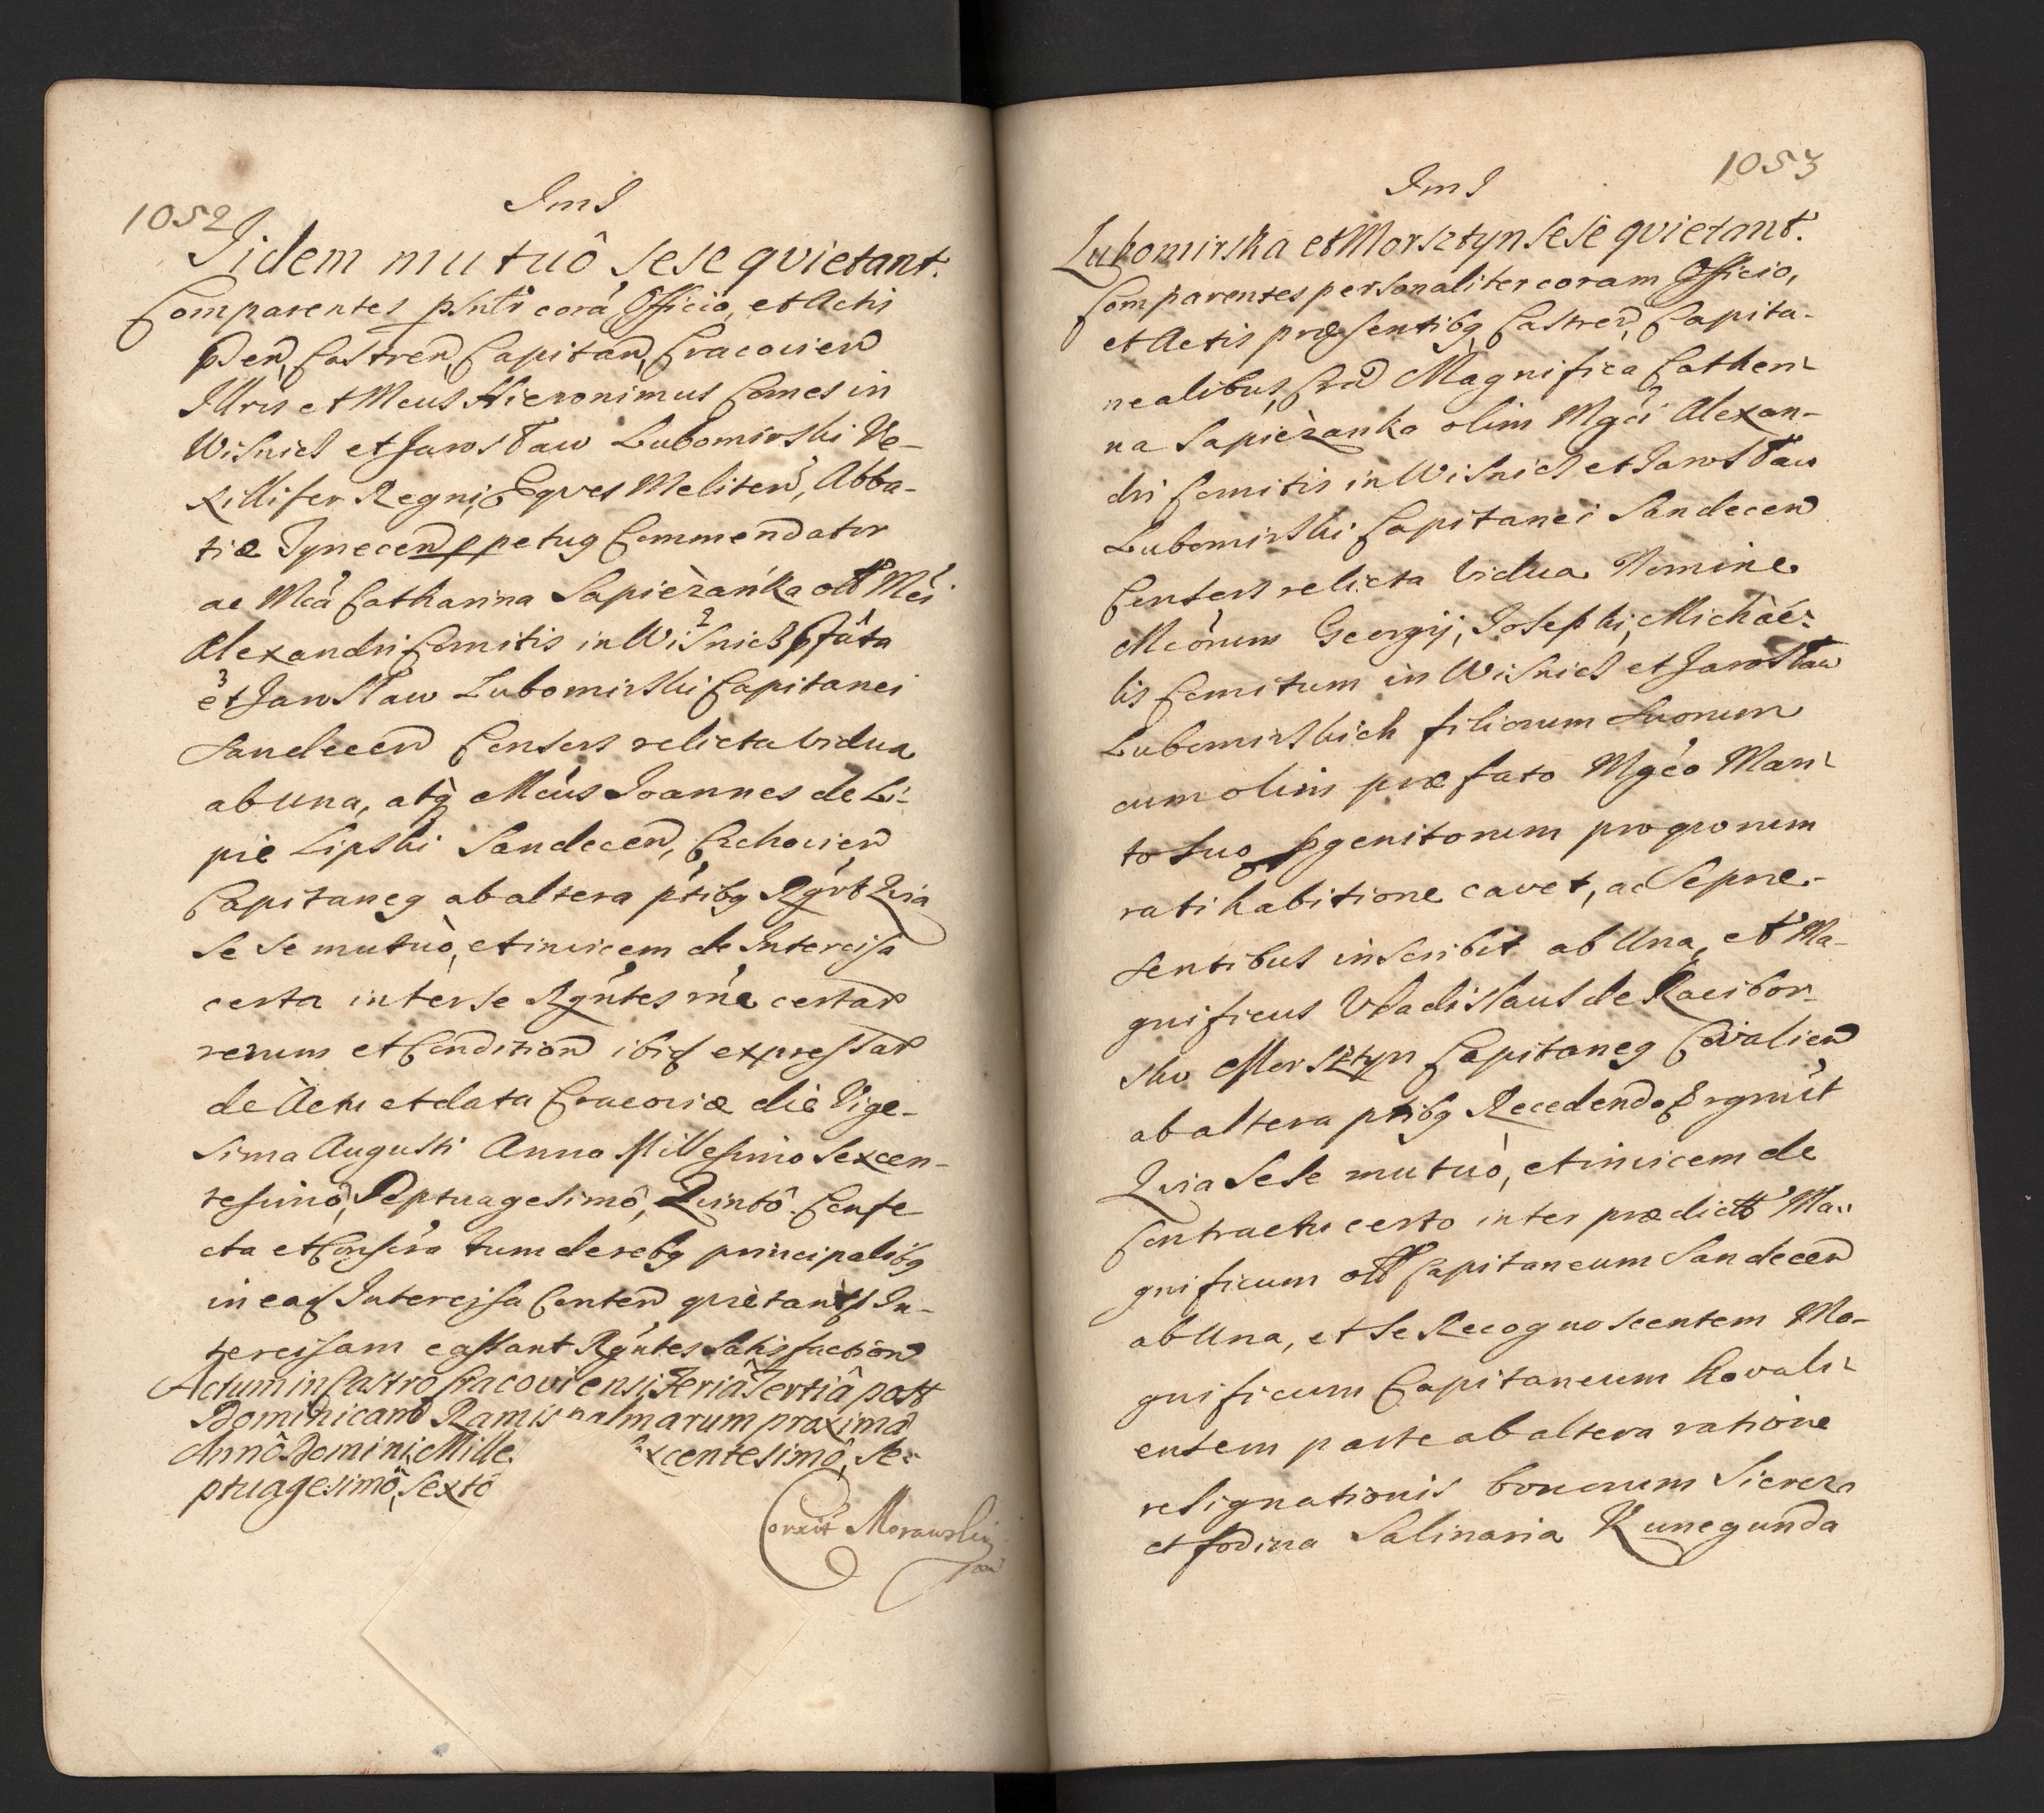 1052
ImJ
Iidem mutuô sese quietant.
Comparentes psntr corá Officio, et Actis
pden, Castren, Capitan, Cracovien
Illris et Mcus Hieronimus Comes in
Wisnicz et Jarosław Lubomirski Ve-
xillifer Regni, Eqves Meliten, Abba-
tiæ Tynecen ppetuq Commendator
ac Mcá Catharina Sapieżanka olt Mci
Alexandri Comitis in Wisnicz pfáta
et Jarosław Lubomirski Capitanei
Sandecen Conters relicta vidua
ab una, atq Mcus Joannes de Li-
pie Lipski Sandecen, Czchovien
Capitaneq ab altera ptibq Rgrt Qvia
se se mutuò, et invicem de Intercisa
certa inter se Rgntes rne certar
rerum et Condition ibid expressar
de Actu et data Cracoviæ die Vige-
sima Augusti Anno Millesimo Sexcen-
tesimô, Septuagesimô, Quintô Confe
cta et Conscra tum de rebq principalibq
in ead Intercisa Conten quietant In-
tercisam cassant Rgntes Satisfaction
Actum in Castro Cracoviensi Feriâ Tertiâ post
Dominicam Ramis palmarum proxima
Annô Domini Mille xcentesimô, Se-
ptuagesimô, Sextô
Corrxit Morawski
1053
ImJ
Lubomirska et Morsztyn sese quietant.
Comparentes personaliter coram Officio,
et Actis præsentibq Castren, Capita-
nealibus, Crac Magnifica Cathen-
na Sapieżanka olim Mgci Alexan-
dri Comitis in Wisnicz et Jarosław
Lubomirski Capitanei Sandecen
Conters relicta vidua Nomine
Mcórum Georgij, Josephi, Michaé-
lis Comitum in Wisnicz et Jarosław
Lubomirskich filiorum suorum
cum olim præfato Mgco Mari-
to suo pgenitorum pro quorum
ratihabitione cavet, ac Se præ-
sentibus inscribit ab Una, et Ma-
gnificus Vladislaus de Racibor-
sko Morsztyn Capitaneq Covalien
ab altera ptibq Recedendo Ergnrút
Qvia Sese mutuò, et invicem de
Contractu certo inter prædictt Ma-
gnificum olt Capitaneum Sandecen
ab Una, et Se Recognoscentem Ma-
gnificum Capitaneum Kovali-
ensem parte ab altera ratione
resignationis bonorum Siercza
et fodina Salinaria Kunegunda